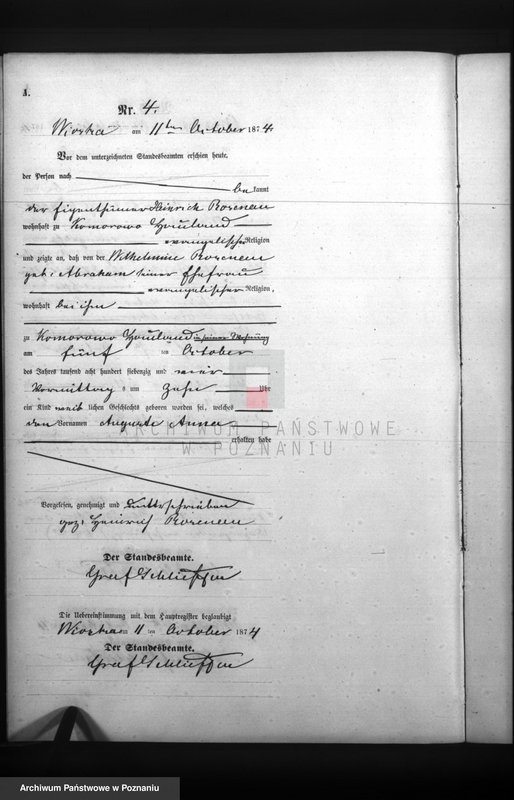 A.
Nr. 4.
Wioska am 11ten October 1874.
Vor dem unterzeichneten Standesbeamten erschien heute,
der Person nach
bekannt
der Eigenthümer Heinrich Rosenau
wohnhaft zu Komorowo Hauland
evangelischer Religion
und zeigte an, daß von der Wilhelmine Rosenau
geb: Abraham seiner Ehefrau
evangelischer Religion,
wohnhaft bei ihm
zu Komorowo Hauland in seiner Wohnung
am fünf ten October
des Jahres tausend acht hundert siebenzig und vier
Vormittag s um zehn Uhr
ein Kind weiblichen Geschlechts geboren worden sei, welches
den Vornamen Auguste Anna
erhalten habe
Vorgelesen, genehmigt und unterschrieben
gez: Heinrich Rosenau
Der Standesbeamte.
Graf Schlieffen
Die Uebereinstimmung mit dem Hauptregister beglaubigt
Wioska am 11 ten October 1874
Der Standesbeamte.
Graf Schlieffen
ARCHIWUM PAŃSTWOWE
W POZNANIU
Archiwum Państwowe w Poznaniu